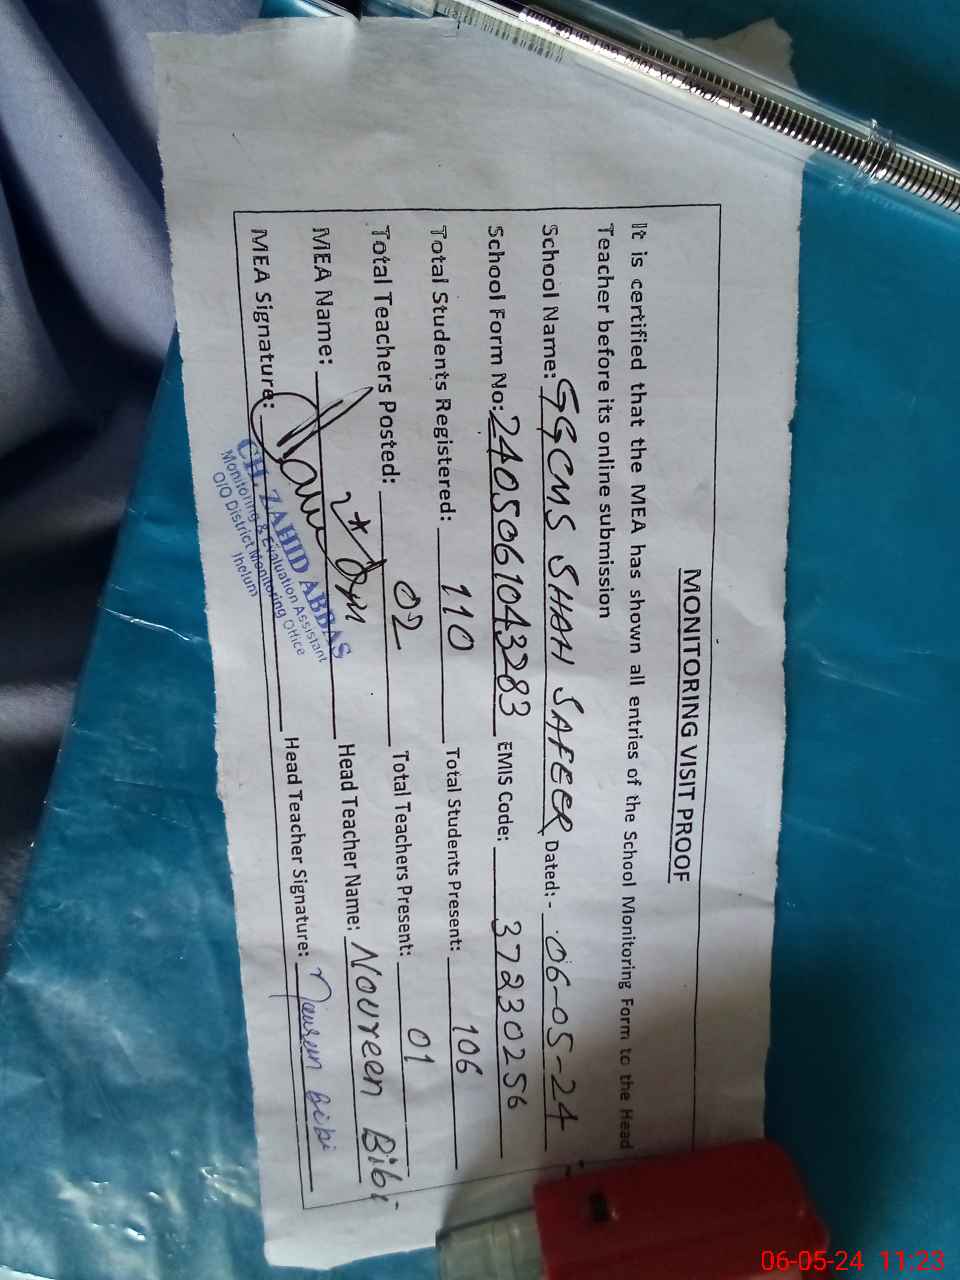 MONITORING VISIT PROOF
It is certified that the MEA has shown all entries of the School Monitoring Form to the Head
Teacher before its online submission
School Name: GGCMS SHAH SAFEER Dated:- 06-05-24
School Form No: 2405061043283 EMIS Code: 37230256
Total Students Registered: 110 Total Students Present: 106
Total Teachers Posted: 02 Total Teachers Present: 01
MEA Name: Head Teacher Name: Noureen Bibi
MEA Signature: Head Teacher Signature: Naureen Bibi
CH. ZAHID ABBAS
Monitoring & Evaluation Assistant
O/O District Monitoring Office
Jhelum
06-05-24 11:23